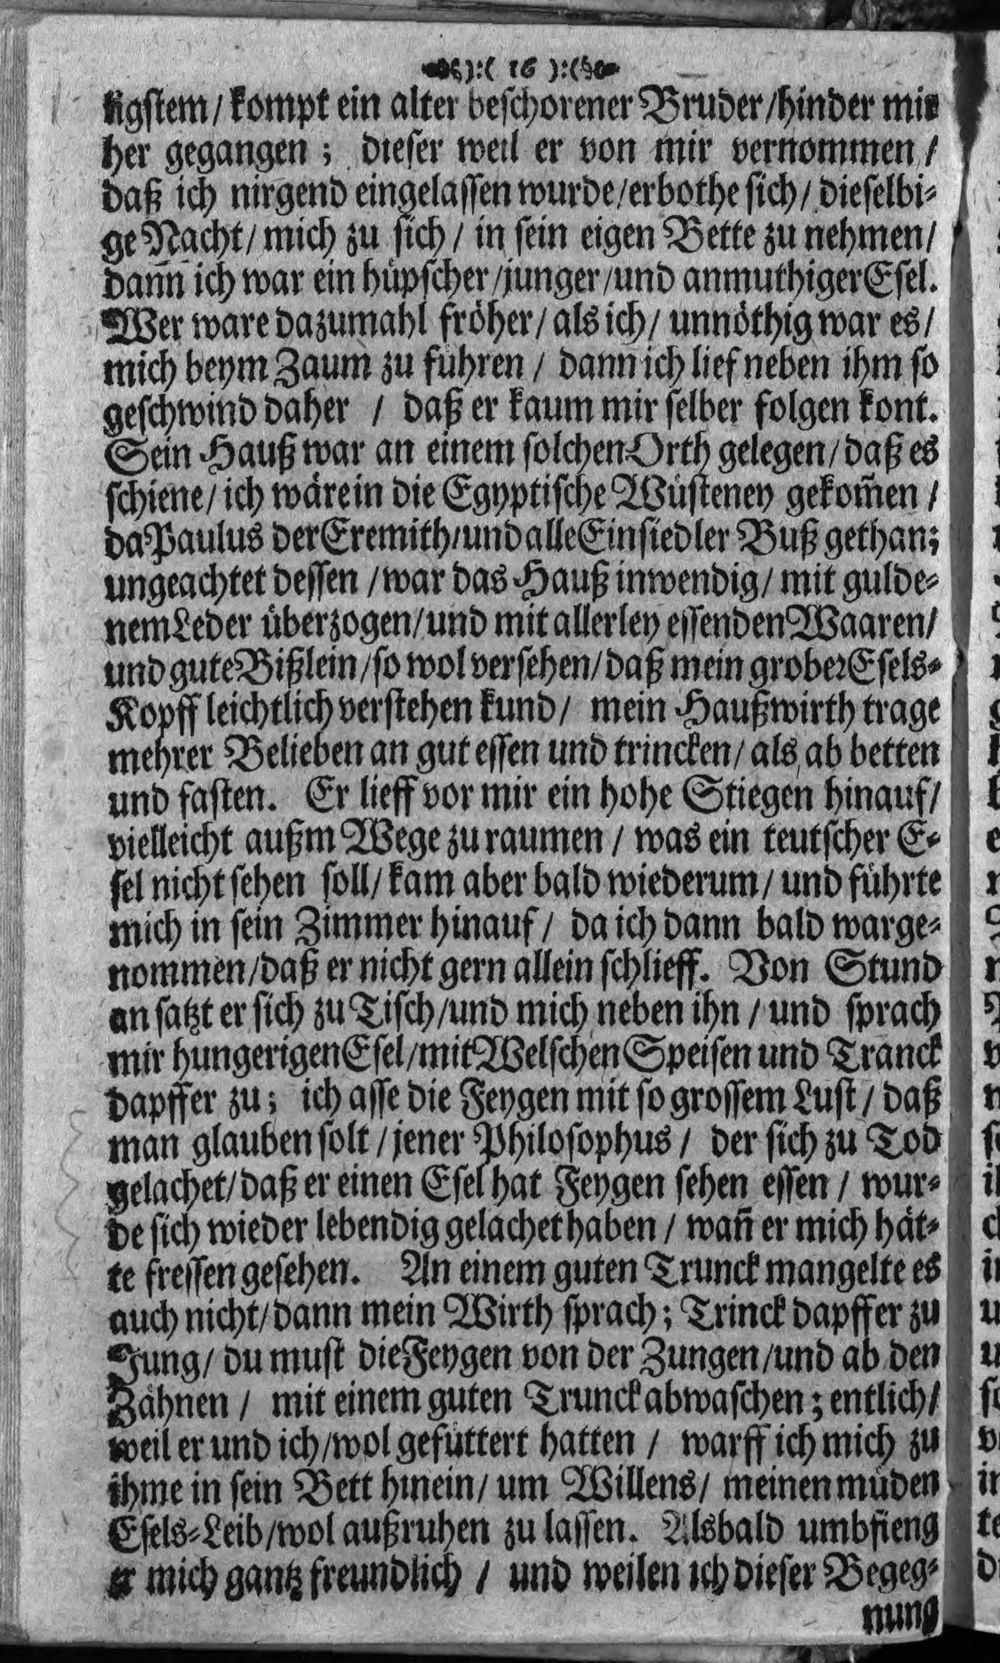 ):( 16 ):(
tigstem/ kompt ein alter beschorener Bruder/hinder mir
her gegangen; dieser weil er von mir vernommen/
daß ich nirgend eingelassen wurde/erbothe sich/ dieselbi-
ge Nacht/ mich zu sich/ in sein eigen Bette zu nehmen/
dañ ich war ein hüpscher/junger/und anmuthiger Esel.
Wer ware dazumahl fröher/ als ich/ unnöthig war es/
mich beym Zaum zu führen/ dann ich lief neben ihm so
geschwind daher / daß er kaum mir selber folgen kont.
Sein Hauß war an einem solchen Orth gelegen/ daß es
schiene/ ich wäre in die Egyptische Wüsteney gekom̃en/
da Paulus der Eremith/und alle Einsiedler Buß gethan;
ungeachtet dessen/ war das Hauß inwendig/ mit gulde-
nem Leder überzogen/und mit allerley essenden Waaren/
und gute Bißlein/so wol versehen/daß mein grober Esels-
Kopff leichtlich verstehen kund/ mein Haußwirth trage
mehrer Belieben an gut essen und trincken/ als ab betten
und fasten. Er lieff vor mir ein hohe Stiegen hinauf/
vielleicht außm Wege zu raumen/ was ein teutscher E-
sel nicht sehen soll/ kam aber bald wiederum/ und führte
mich in sein Zimmer hinauf/ da ich dann bald warge-
nommen/daß er nicht gern allein schlieff. Von Stund
an satzt er sich zu Tisch/und mich neben ihn/ und sprach
mir hungerigen Esel/mit Welschen Speisen und Tranck
dapffer zu; ich asse die Feygen mit so grossem Lust/ daß
man glauben solt/ jener Philosophus/ der sich zu Tod
gelachet/daß er einen Esel hat Feygen sehen essen/ wur-
de sich wieder lebendig gelachet haben/ wañ er mich hät-
te fressen gesehen. An einem guten Trunck mangelte es
auch nicht/ dann mein Wirth sprach; Trinck dapffer zu
Jung/ du must die Feygen von der Zungen/und ab den
Zähnen/ mit einem guten Trunck abwaschen; entlich/
weil er und ich/wol gefüttert hatten/ warff ich mich zu
ihme in sein Bett hinein/ um Willens/ meinen müden
Esels-Leib/wol außruhen zu lassen. Alsbald umbfieng
er mich gantz freundlich/ und weilen ich dieser Begeg-
nung